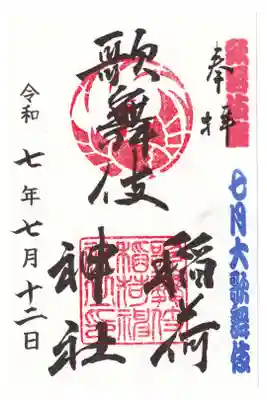 歌舞伎座
奉拝
七月大歌舞伎
歌舞伎
稲荷
神社
令和七年七月十二日